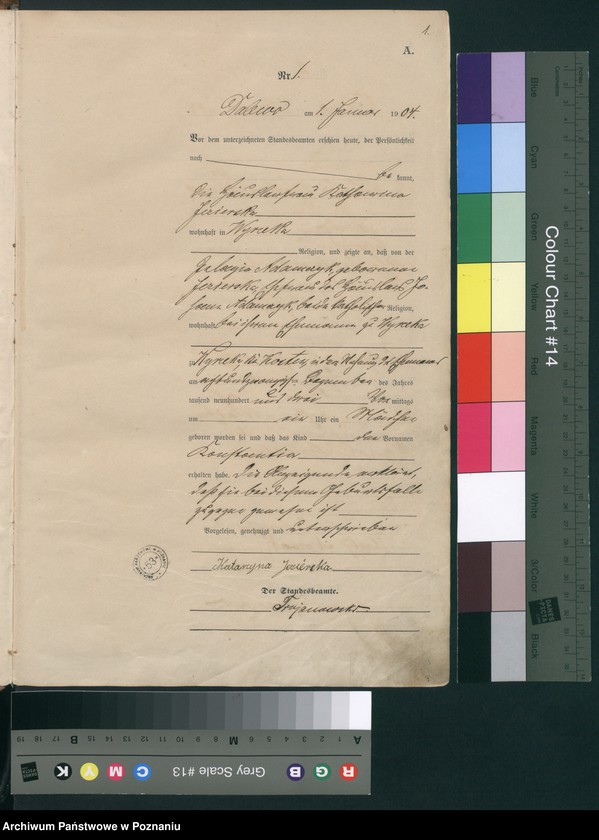 1.
A.
Nr. 1.
Dalewo am 1. Januar 1904.
Vor dem unterzeichneten Standesbeamten erschien heute, der Persönlichkeit
nach
be kannt,
die Häuslerfrau Katharina
Jezierska
wohnhaft in Wyrzeka
Religion, und zeigte an, daß von der
Pelagia Adamczyk, geborenen
Jezierska, Ehefrau des Häuslers Jo-
hann Adamczyk, beide katholischer Religion,
wohnhaft bei ihrem Ehemanne zu Wyrzeka
zu Wyrzeka in der Wohnung des Ehemannes
am achtundzwanzigsten Dezember des Jahres
tausend neunhundert und drei Vor mittags
um ein Uhr ein Mädchen
geboren worden sei und daß das Kind den Vornamen
Konstantia
erhalten habe. Die Anzeigende erklärt,
daß sie bei diesem Geburtsfalle
zugegen gewesen ist
Vorgelesen, genehmigt und unterschrieben
Katarzyna Jezierska
Der Standesbeamte.
Trojanowski
63
Colour Chart #14
Blue
Cyan
Green
Yellow
Red
Magenta
White
3/Color
Black
Grey Scale #13
R G B C M Y K
A 1 2 3 4 5 6 M 8 9 10 11 12 13 14 15 B 17 18 19
Archiwum Państwowe w Poznaniu